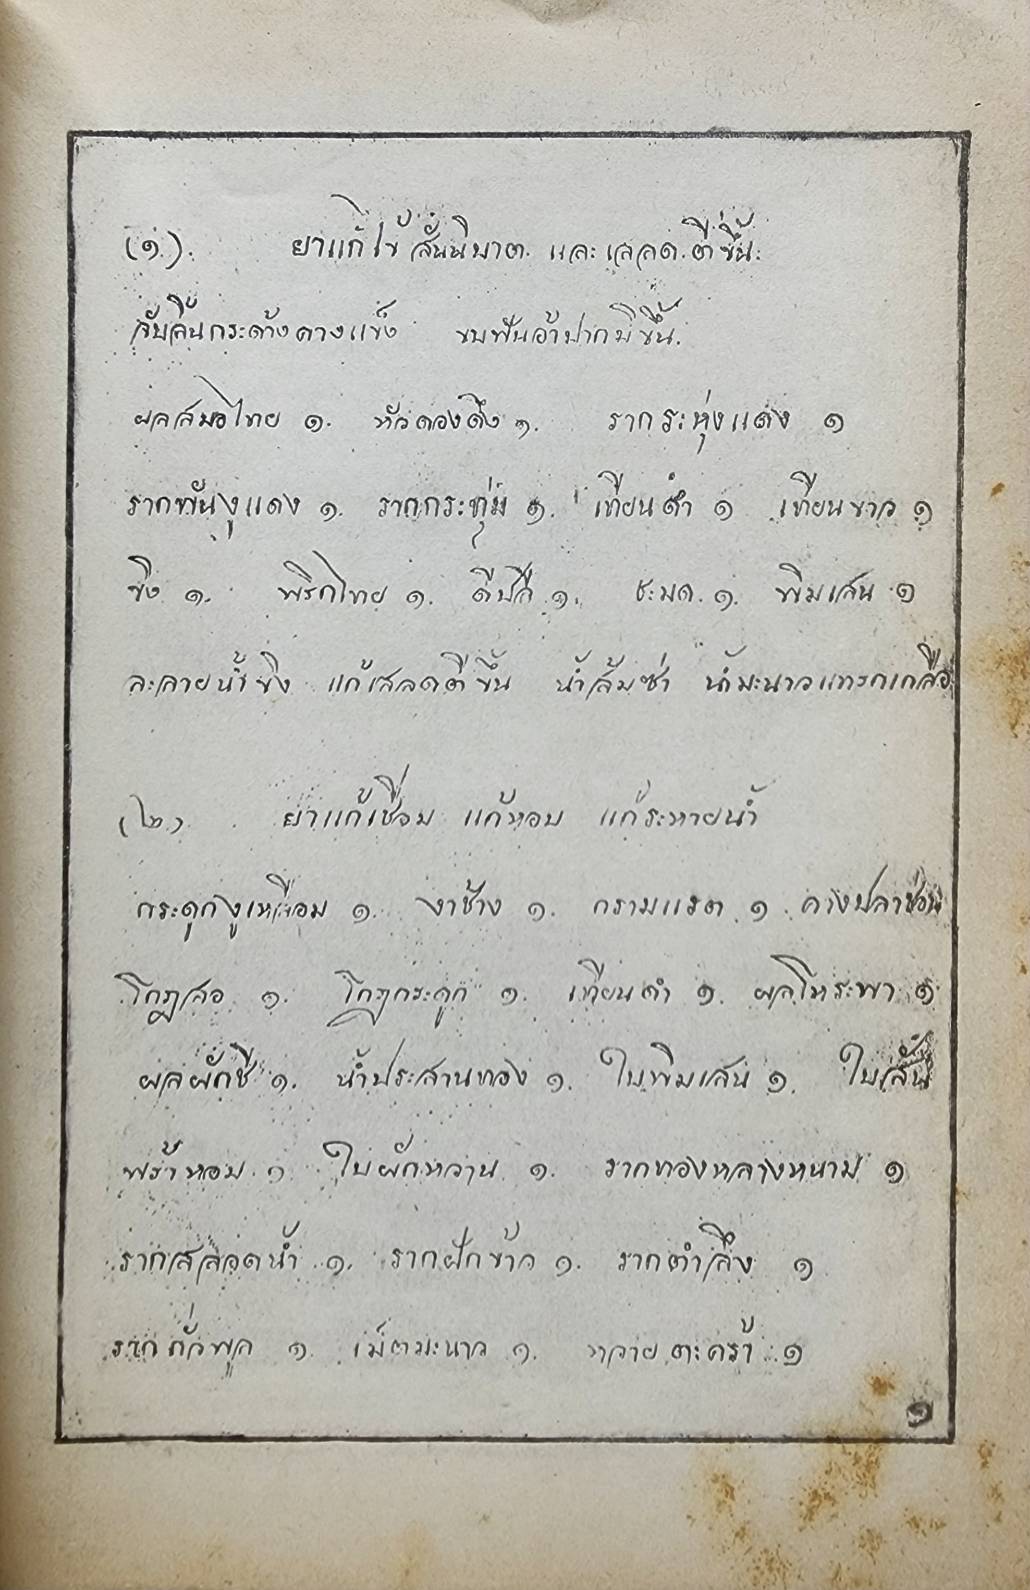 (๑). ยาแก้ไข้สันนิบาต. และเสลด.ตีขึ้น.
จับลิ้นกระด้างคางแข็ง ขบฟันอ้าปากมิขึ้น.
ผลสมอไทย ๑. หัวดองดึง ๑. รากระหุ่งแดง ๑
รากพันงูแดง ๑. รากกระทุ่ม ๑. เทียนดำ ๑ เทียนขาว ๑
ขิง ๑. พริกไทย ๑. ดีปลี ๑. ชะมด. ๑. พิมเสน ๑
ละลายน้ำขิง แก้เสลดตีขึ้น น้ำส้มซ่า น้ำมะนาวแทรกเกลือ
(๒) ยาแก้เชื่อม แก้หอบ แก้ระหายน้ำ
กระดูกงูเหลือม ๑. งาช้าง ๑. กรามแรด ๑ คางปลาช่อน
โกฏสอ ๑. โกฏกระดูก ๑. เทียนดำ ๑. ผลโหระพา ๑
ผลผักชี ๑. น้ำประสานทอง ๑. ใบพิมเสน ๑. ใบสัน
พร้าหอม ๑ ใบผักหวาน ๑. รากทองหลางหนาม ๑
รากสลอดน้ำ ๑. รากฝักข้าว ๑. รากตำลึง ๑
รากถั่วพูล ๑. เม็ดมะนาว ๑. หวายตะคร้า ๑
๑